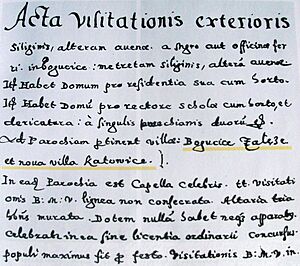 Acta Visitationis exterioris
siliginis, alteram auenæ. a
in bogucice: metretam siliginis, alterā auenæ
Itē Habet Domum pro residentia sua cum horto.
Itē Habet Domū pro rectore scholæ cum horto, et
clericatura: à singulis duorū
Ad Parochiam ptinent villæ: Bogucice Zalęze
et noua villa Katowice.
In eadē Parochia est Capella celebris. tt. Visitati
onis B: M: V: lignea non consecrata. Altaria tria
murata. Dotem nullā habet neqȝ
celebratr in ea sine licentia ordinarii Concursus
populi maximus fit festo. Visitationis B: M: V: in